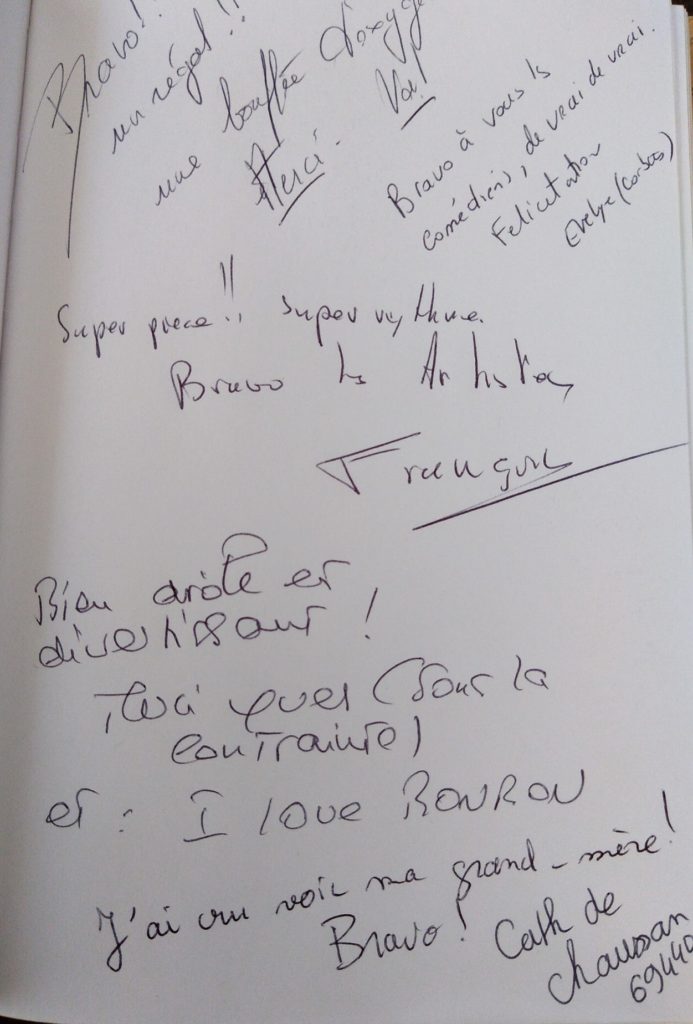 Bravo!!
un régal!!
une bouffée d'oxygè
Merci.
Bravo à vous ls
comédiens, de vrai de vrai.
Felicitation
Evelyne (Corbas)
Super piece!! Super rythme.
Bravo ls Artistes
François
Bien drôle et
divertissant!
Merci Yves (sous la
contrainte)
et : I love RONRON
J'ai cru voir ma grand-mère!
Bravo! Cath de
Chaussan
69440